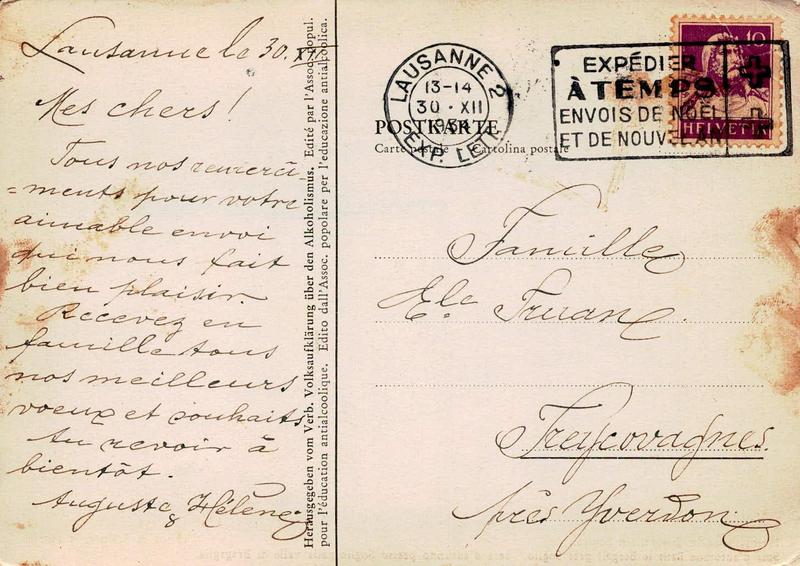 Lausanne le 30. XII
Mes chers!
Tous nos remerci
=ments pour votre
aimable envoi
qui nous fait
bien plaisir.
Recevez en
famille tous
nos meilleurs
voeux et souhaits
Au revoir à
bientôt.
Auguste & Hélène
Herausgegeben vom Verb. Volksaufklärung über den Alkoholismus. Edité par l'Assoc. popul.
pour l'éducation antialcoolique. Edito dall'Assoc. popolare per l'educazione antialcoolica.
LAUSANNE 2
13-14
30·XII
EXP. LET.
EXPÉDIER
À TEMPS
ENVOIS DE NOËL
ET DE NOUVEL AN
10
HELVETIA
POSTKARTE
Carte postale Cartolina postale
Famille
Ele Truan.
Treycovagnes.
près Yverdon